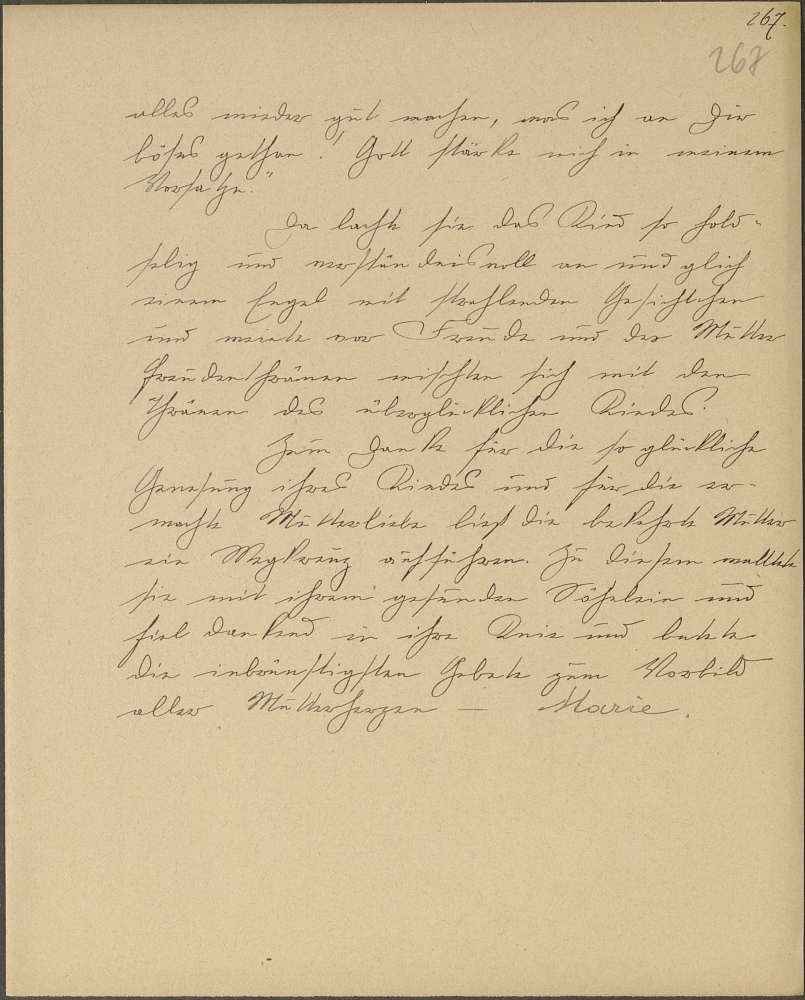 267.
267
alles wieder gut machen, was ich an Dir
böses gethan! Gott stärke mich in meinem
Vorsatze."
Da lachte sie das Kind so hold-
selig und verständnisvoll an und glich
einem Engel mit strahlenden Gesichtchen
und weinte vor Freude und der Mutter
Freudenthränen mischten sich mit den
Thränen des überglücklichen Kindes.
Zum Danke für die so glückliche
Genesung ihres Kindes und für die er-
wachte Mutterliebe ließ die bekehrte Mutter
ein Wegkreuz aufführen. Zu diesem wallte
sie mit ihrem gesunden Söhnlein und
fiel dankend in ihre Knie und betete
die inbrünstigsten Gebete zum Vorbild
aller Mutterherzen — Marie.